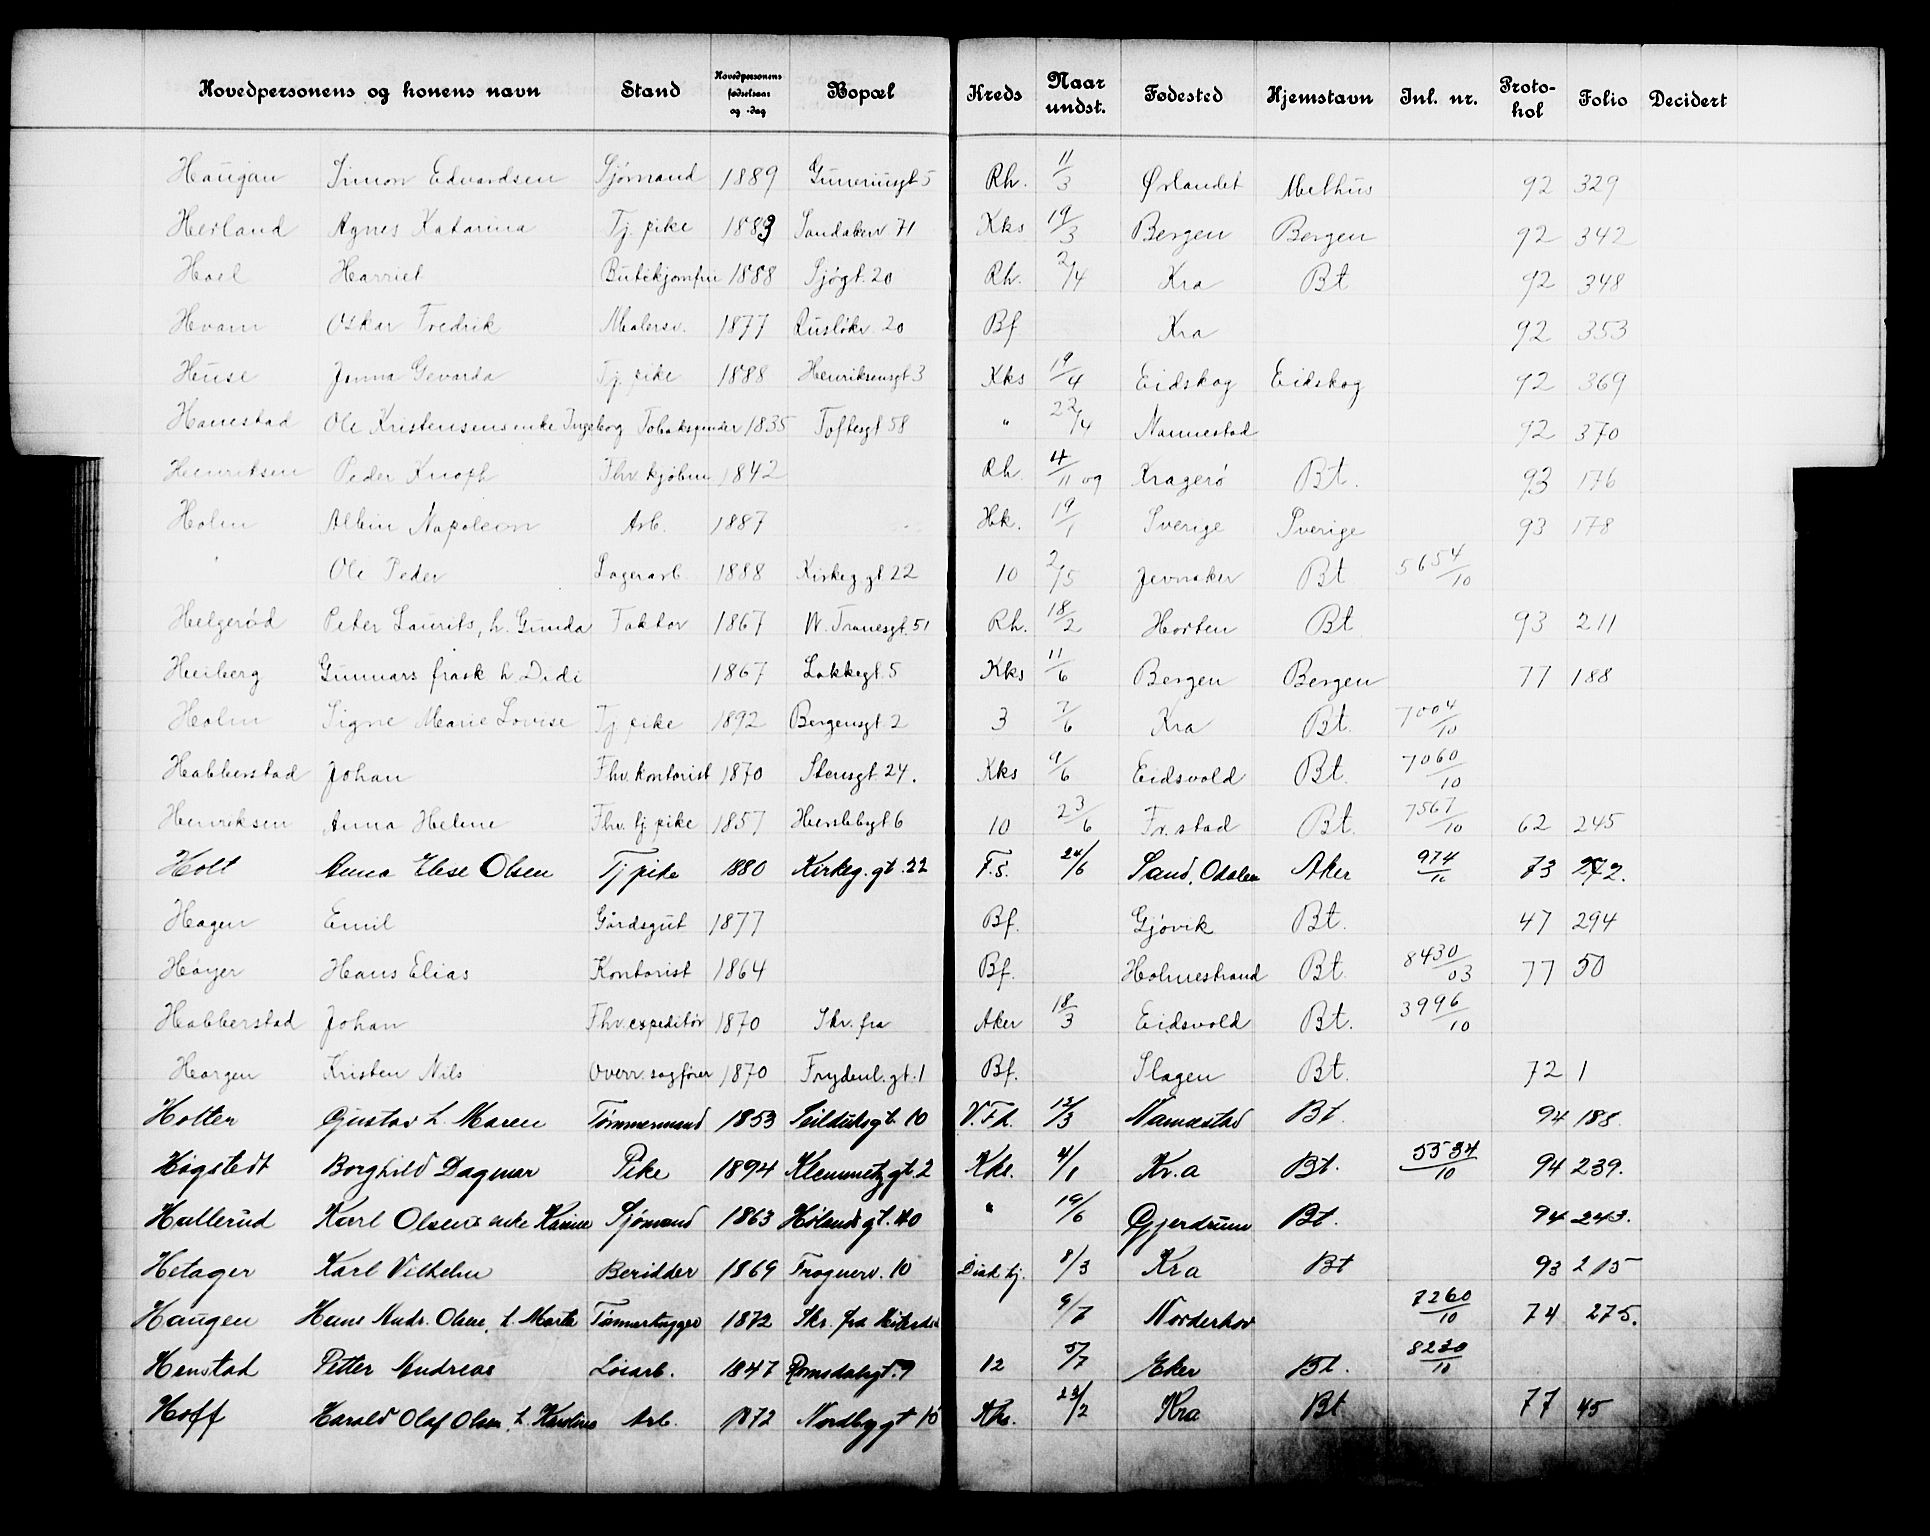 Hovedpersonens og konens navn Stand Hovedpersonens fødselsaar og -dag Bopæl Kreds Naar undst. Fødested Hjemstavn Inl. nr. Protokol Folio Decidert
Haugan Simon Edvardsen Sjømand 1889 5 Rh. 11/3 Ørlandet Melhus 92 329
Herland Agnes Katarina Tj. pike 1883 Sandakerv 71 Kks 19/3 Bergen Bergen 92 342
Hoel Harriet Butikjomfru 1888 Sjøgt. 20 Rh. 2/4 Kra Bt 92 348
Hvam Oskar Fredrik Malersv. 1877 Rusløkv. 20 Bf Kra 92 353
Huse Jenna Gevarda Tj. pike 1888 Henriksensgt 3 Kks 19/4 Eidskog Eidskog 92 369
Hanestad Ole Kristensens enke Ingeborg 1835 Toftesgt 58 " 22/4 Nannestad 92 370
Henriksen Peder Knoph Fhv. kjøbm 1842 Rh. 4/11 og Kragerø Bt. 93 176
Holm Albin Napoleon Arb. 1887 Hk. 19/1 Sverige Sverige 93 178
" Ole Peder Lagerarb. 1888 Kirkeg gt 22 10 2/5 Jevnaker Bt 5654/10
Helgerød Peter Laurits, h. Gunda Faktor 1867 W. Tranesgt. 51 Rh. 18/2 Horten Bt 93 211
Heiberg Gunnars frask h. Didi 1867 Løkkegt. 5 Kks 11/6 Bergen Bergen 77 188
Holm Signe Marie Lovise Tj pike 1892 Bergensgt 2 3 7/6 Kra Bt. 7004/10
Habberstad Johan Fhv. kontorist 1870 Stensgt. 24. Kks 9/6 Eidsvold Bt. 7060/10
Henriksen Anna Helene Fhv. tj. pike 1857 Herslebsgt 6 10 23/6 Fr.stad Bt. 7567/10 62 245
Holt Anna Elese Olsen Tj pike 1880 Kirkeg. gt. 22 F.S. 24/6 Sand, Odalen Aker 974/11 73 272.
Hagen Emil Gårdsgut 1877 Bf. Gjøvik Bt. 47 294
Høyer Hans Elias Kontorist 1864 Bf. Holmestrand Bt. 8430/03 77 50
Habberstad Johan Fhv. expeditør 1870 Skr. fra Aker 18/3 Eidsvold Bt. 3996/10
Horgen Kristen Nils Overr. sagfører 1870 Frydenl. gt. 1 Bf. Slagen Bt. 72 1
Holter Gustav h. Maren Tømmermand 1853 Seildugsgt. 10 V.Fd. 12/3 Nannestad Bt 94 188.
Høgstedt Borghild Dagmar Pike 1894 Klemmetsgt. 2 Kks. 4/1 Kr.a Bt. 5534/10 94 239.
Hullerud Karl Olsens enke Karine Sjømand 1863 Hølandsgt. 40 " 19/6 Gjerdrum Bt. 94 243.
Hetager Karl Vilhelm Beridder 1869 Frognerv. 10 Diak hj. 8/3 Kra Bt 93 215
Haugen Hans Andr. Olsen, h. Marte Tømmerhugger 1872 Skr. fra 9/7 Norderhov 7260/10 74 275.
Henstad Petter Andreas Løsarb. 1847 Romsdalsgt. 9 12 5/7 Eker Bt. 8230/10
Hoff Harald Olaf Olsen, h. Karoline Arb. 1872 Nordbygt 10 Rh. 23/2 Kra Bt 77 45